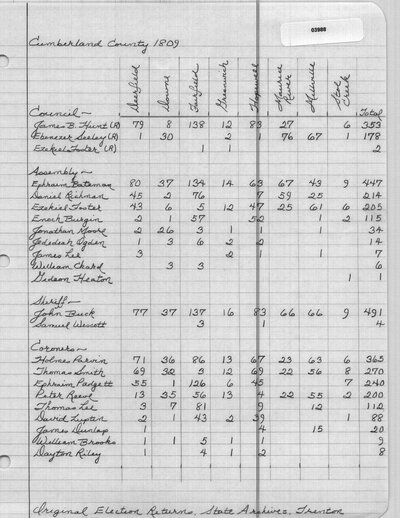 03988
Cumberland County 1809
Deerfield Downe Fairfield Greenwich Hopewell Maurice River Millville Stoe Creek
Council — Total
James B. Hunt (R) 79 8 138 12 83 27 6 353
Ebenezer Seeley (R) 1 30 2 1 76 67 1 178
Ezekiel Foster (R) 1 1 2
Assembly —
Ephraim Bateman 80 37 134 14 63 67 43 9 447
Daniel Richman 45 2 76 7 59 25 214
Ezekiel Foster 43 6 5 12 47 25 61 6 205
Enoch Burgin 2 1 57 52 1 2 115
Jonathan Moore 2 26 3 1 1 1 34
Jedediah Ogden 1 3 6 2 2 14
James Lee 3 2 1 1 7
William Chard 3 3 6
Gideon Heaton 1 1
Sheriff —
John Buck 77 37 137 16 83 66 66 9 491
Samuel Wescott 3 1 4
Coroners —
Holmes Parvin 71 36 86 13 67 23 63 6 365
Thomas Smith 69 32 3 12 69 22 56 8 270
Ephraim Padgett 55 1 126 6 45 7 240
Peter Reeve 13 35 56 13 4 22 55 2 200
Thomas Lee 3 7 81 9 12 112
David Lupton 2 1 43 2 39 1 88
James Dunlap 1 4 15 20
William Brooks 1 1 5 1 1 9
Dayton Riley 1 4 1 2 8
Original Election Returns, State Archives, Trenton